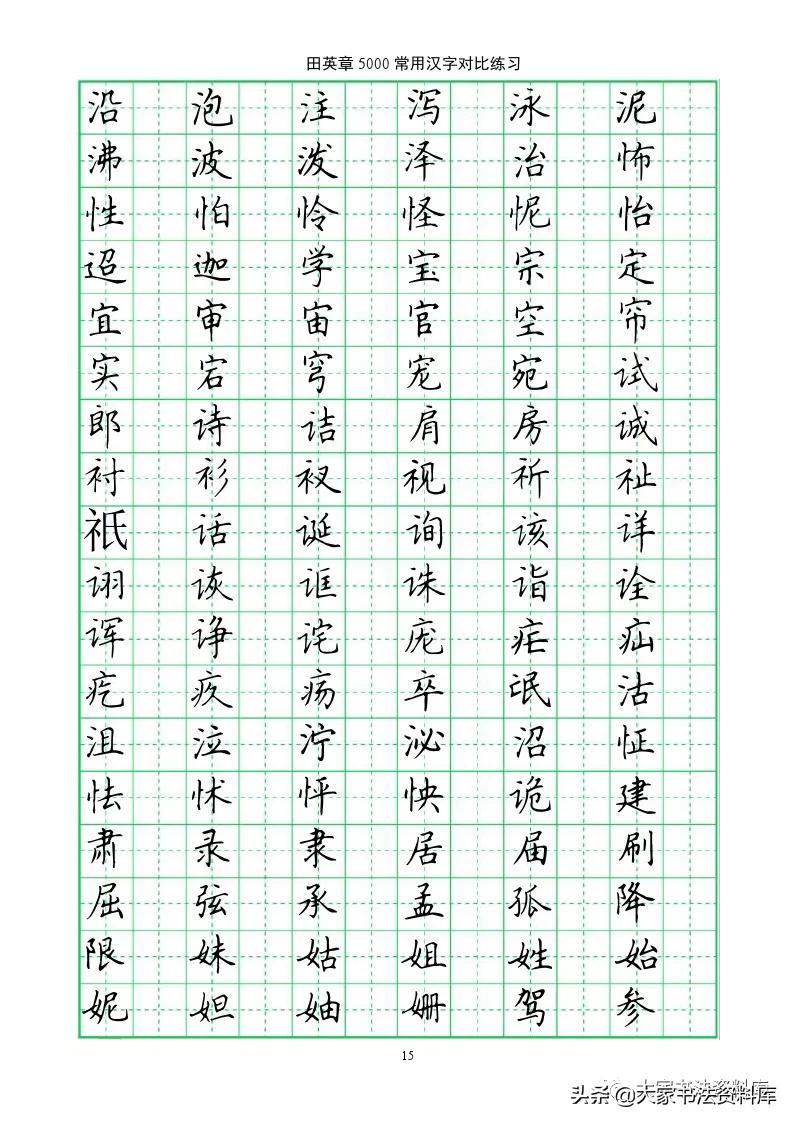 田英章5000常用汉字对比练习
沿 泡 注 泻 泳 泥
沸 波 泼 泽 治 怖
性 怕 怜 怪 怩 怡
迢 迦 学 宝 宗 定
宜 审 宙 官 空 帘
实 宕 穹 宠 宛 试
郎 诗 诘 肩 房 诚
衬 衫 衩 视 祈 祉
祇 话 诞 询 该 详
诩 诙 诓 诛 诣 诠
诨 诤 诧 庞 疟 疝
疙 疚 疡 卒 氓 沽
沮 泣 泞 泌 沼 怔
怯 怵 怦 怏 诡 建
肃 录 隶 居 届 刷
屈 弦 承 孟 孤 降
限 妹 姑 姐 姓 始
妮 妲 妯 姗 驾 参
15
头条@大家书法资料库